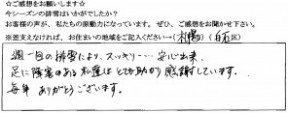 ☆ご感想をお願いします☆
今シーズンの排雪はいかがでしたか?
お客様の声が、私たちの原動力になっています。ぜひ、ご感想をお聞かせ下さい。
※差支えなければ、お住まいの地域をご記入ください→(札幌市)(白石区)
週一回の排雪により、スッキリ… 安心出来、
足に障害がある私達はとても助かり感謝しています。
毎年 ありがとうございます。